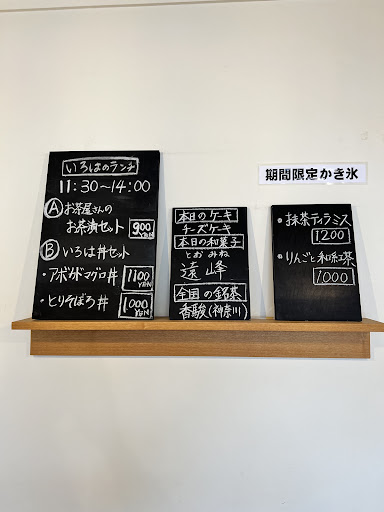 いろはのランチ
11:30〜14:00
Ⓐお茶屋さんの
お茶漬セット 900YEN
Ⓑいろは丼セット
・アボカドマグロ丼 1100YEN
・とりそぼろ丼 1000YEN
本日のケーキ
チーズケーキ
本日の和菓子
とおみね
遠峰
全国の銘茶
香駿(神奈川)
期間限定かき氷
・抹茶ティラミス
1200
・りんごと和紅茶
1000